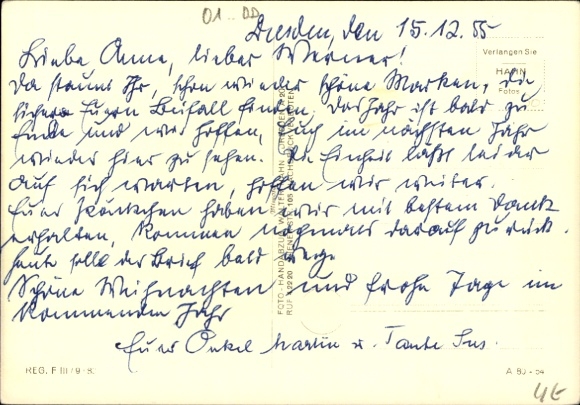 01.. DD
Dresden, den 15.12.55
Liebe Anne, lieber Werner!
Da staunt Ihr, schon wieder schöne Marken, die
sicher Euern Beifall finden. Das Jahr ist bald zu
Ende und wir hoffen, Euch im nächsten Jahr
wieder hier zu sehen. Die Einheit läßt leider
auf sich warten, hoffen wir weiter.
Euer Päckchen haben wir mit bestem Dank
erhalten, kommen nochmals darauf zurück.
Heute soll der Brief bald weg.
Schöne Weihnachten und frohe Tage im
kommenden Jahr
Euer Onkel Martin u. Tante Sus.
Verlangen Sie
HAHN
Fotos
FOTO-HANDABZUG WALTER HAHN
RUF 52220
REG. F III / 9 -
A 82 - 54
4E